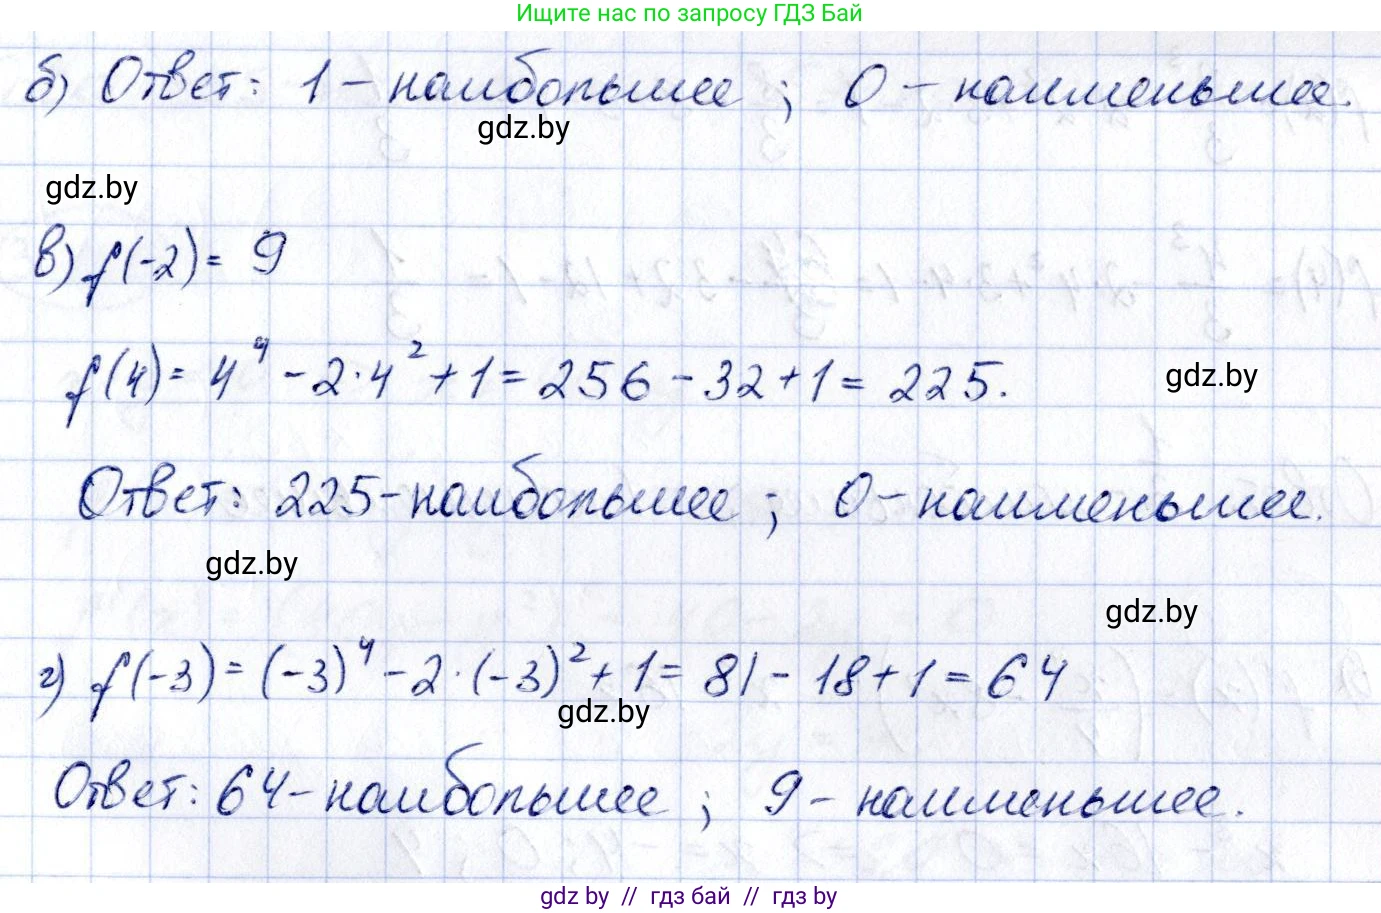 Ищите нас по запросу ГДЗ Бай
б) Ответ: 1 – наибольшее ; 0 – наименьшее.
gdz.by
gdz.by
в) f(-2) = 9
f(4) = 4⁴ - 2·4² + 1 = 256 - 32 + 1 = 225.
gdz.by
Ответ: 225 - наибольшее ; 0 - наименьшее.
gdz.by
gdz.by
г) f(-3) = (-3)⁴ - 2·(-3)² + 1 = 81 - 18 + 1 = 64
gdz.by
Ответ: 64 - наибольшее ; 9 - наименьшее.
gdz.by // гдз бай // гдз by